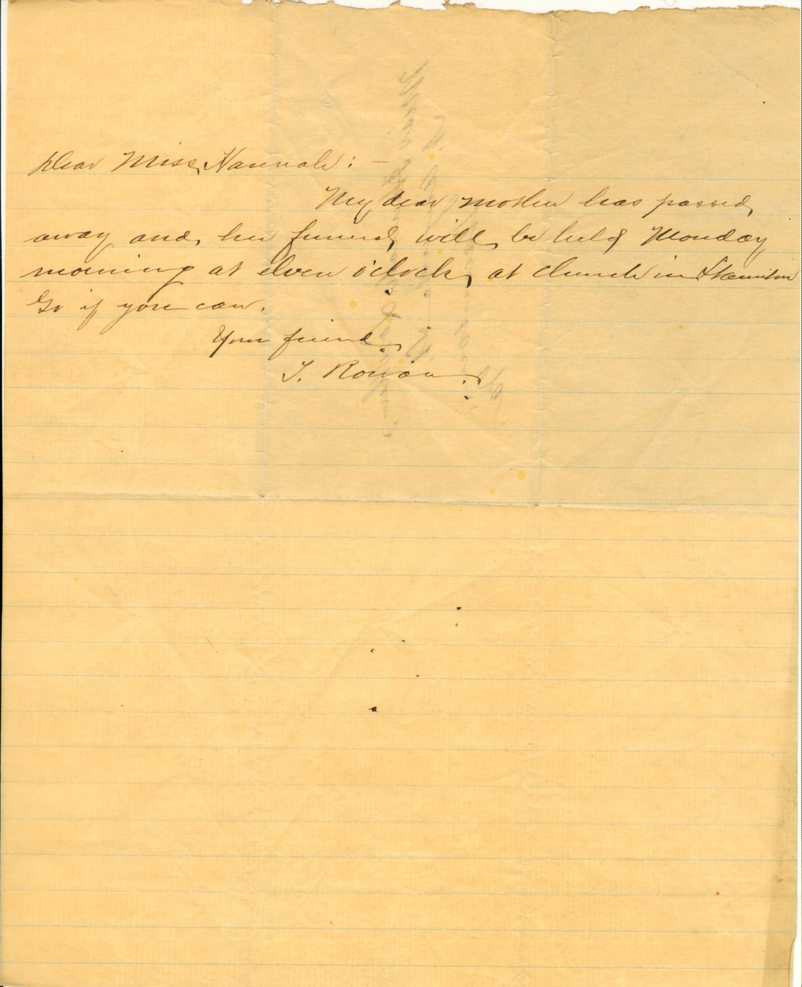 Dear Miss Hannah: -
My dear mother has passed
away and her funeral will be held Monday
morning at eleven o'clock at church in Staunton
Go if you can.
Your friend
T. Rowan.